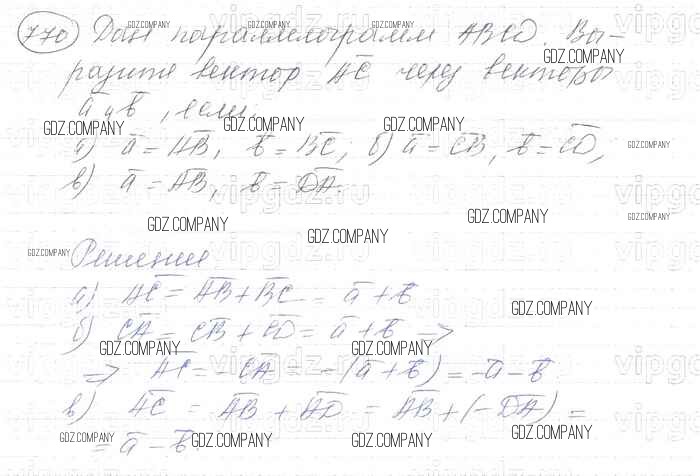 770 Дан параллелограмм ABCD. Вы-
разите вектор AC через векторы
a и b, если:
а) a = AB, b = BC; б) a = CB, b = CD;
в) a = AB, b = DA.
Решение
а) AC = AB + BC = a + b
б) CA = CB + CD = a + b ⇒
⇒ AC = -CA = -(a + b) = -a - b
в) AC = AB + AD = AB + (-DA) =
= a - b.
GDZ.COMPANY
vipgdz.ru